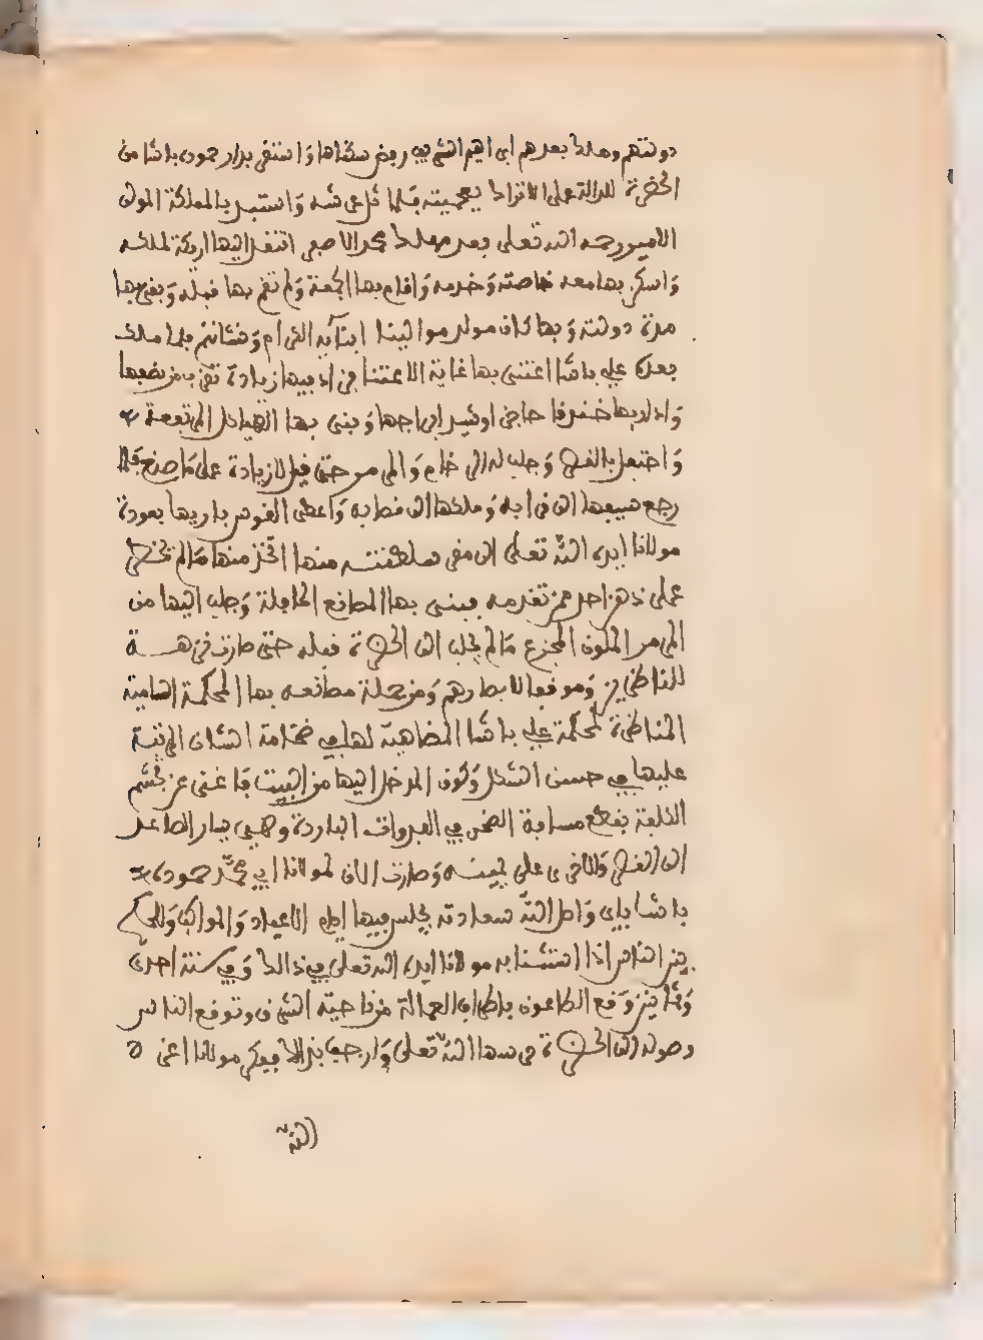 دولتهم وملك بعدهم ابراهيم الشريف رفض سكناها واستقر بدار حمودة باشا من
الحضرة للدالة على الاتراك فلما ثل عرشه واستبد بالمملكة المولى
الامير رحمه الله تعالى بعد مهلك محمد الاصفر انتقل اليها اريكة لملكه
واسكن بها معه خاصته وخدمه واقام بها الجمعة ولم تقم بها قبله وبقي بها
مدة دولته وبها كان مولد موالينا ابنآيه الكرام ونشاتهم فلما ملك
بعده علي باشا اعتنى بها غاية الاعتنا فزاد فيها زيادة تقرب من نصفها
وادار بها خندقا حاجزا وشيد ابراجها وبنى بها الهياكل المرتفعة
واحتفل بالقصر وجلب له الرخام والمرمر حتى قيل لا زيادة على ما صنع فلما
رجع سيفها الى قرابه وملكها الى نصابه واعطى القوس باريها بعودة
مولانا ايده الله تعالى الى مقر سلطنته منها اتخذ منها ما لم يخطر
على ذهن احد ممن تقدمه فبنى بها المصانع الحافلة وجلب اليها من
المرمر الملون المجزع ما لم يجلب الى الحضرة قبله حتى صارت نزهة
للناظرين وموقعا لابصارهم ومن جملة مصانعه بها المحكمة السامية
المناظرة لمحكمة علي باشا المضاهية لها في ضخامة الشان المربية
عليها في حسن الشكل وكون المدخل اليها من البيت فاغنى عن تجشم
الكلفة بقطع مسافة الصحن في الاوقات الباردة وهي يسار الصاعد
الى القصر والاخرى على يمينه وصارت الان لمولانا ابي محمد حمودة
باشا باي وصل الله سعادته يجلس فيها ايام الاعياد والمواكب وللحكم
بين الناس اذا استنابه مولانا ايده الله تعالى في ذالك وفي سنة احدى
وثمانين وقع الطاعون باطراف العمالة من ناحية الشرق وتوقع الناس
وصوله الى الحضرة حرسها الله تعالى وارجف بذالك مولانا اعزه
الله